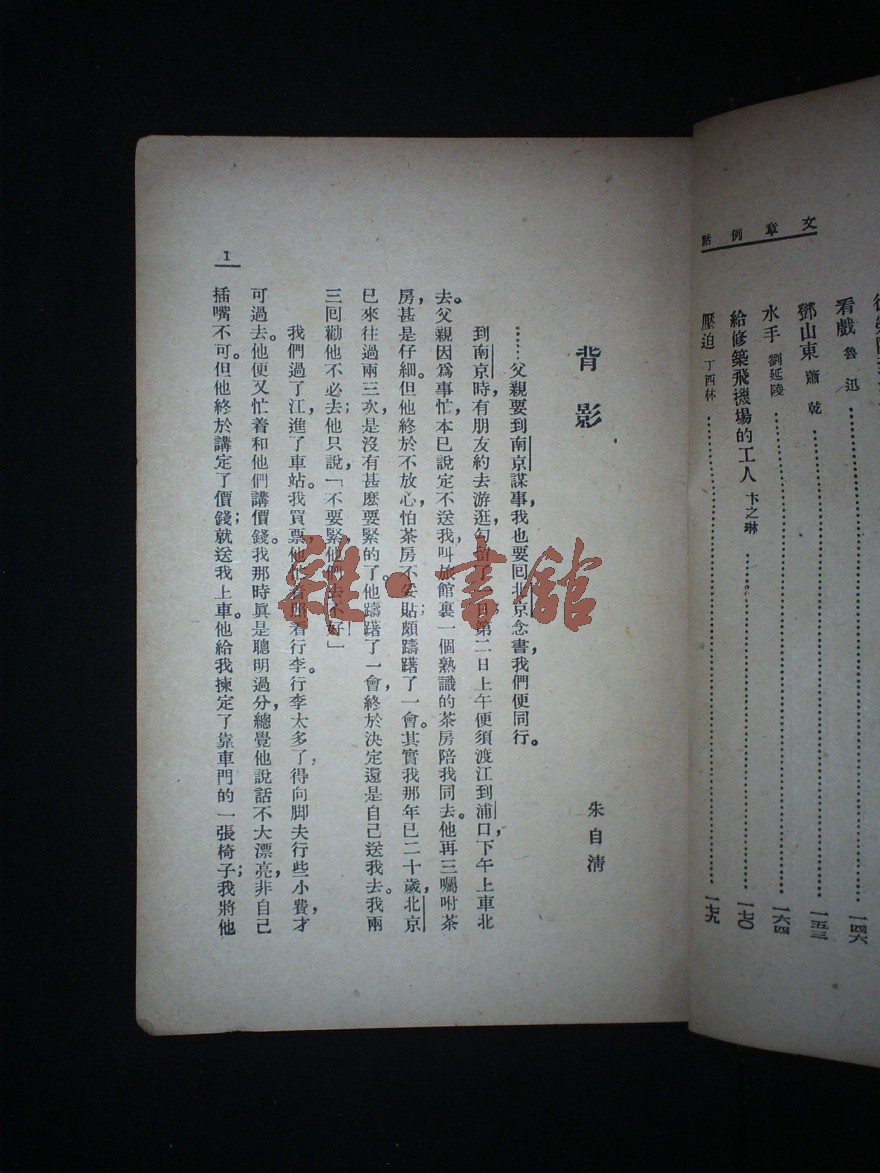 文章例話
看戲 魯迅……一四六
鄧山東 蕭乾……一五三
水手 劉延陵……一六四
給修築飛機場的工人 卞之琳……一七〇
壓迫 丁西林……一七九
背影
朱自清
……父親要到南京謀事，我也要回北京念書，我們便同行。
到南京時，有朋友約去游逛，勾留了一日；第二日上午便須渡江到浦口，下午上車北
去。父親因爲事忙，本已說定不送我，叫旅館裏一個熟識的茶房陪我同去。他再三囑咐茶
房，甚是仔細。但他終於不放心，怕茶房不妥貼；頗躊躇了一會。其實我那年已二十歲，北京
已來往過兩三次，是沒有甚麼要緊的了。他躊躇了一會，終於決定還是自己送我去。我兩
三回勸他不必去；他只說，「不要緊，他們去不好！」
我們過了江，進了車站。我買票，他忙着照看行李。行李太多了，得向脚夫行些小費，才
可過去。他便又忙着和他們講價錢。我那時眞是聰明過分，總覺他說話不大漂亮，非自己
插嘴不可。但他終於講定了價錢；就送我上車。他給我揀定了靠車門的一張椅子；我將他
1
雜·書館